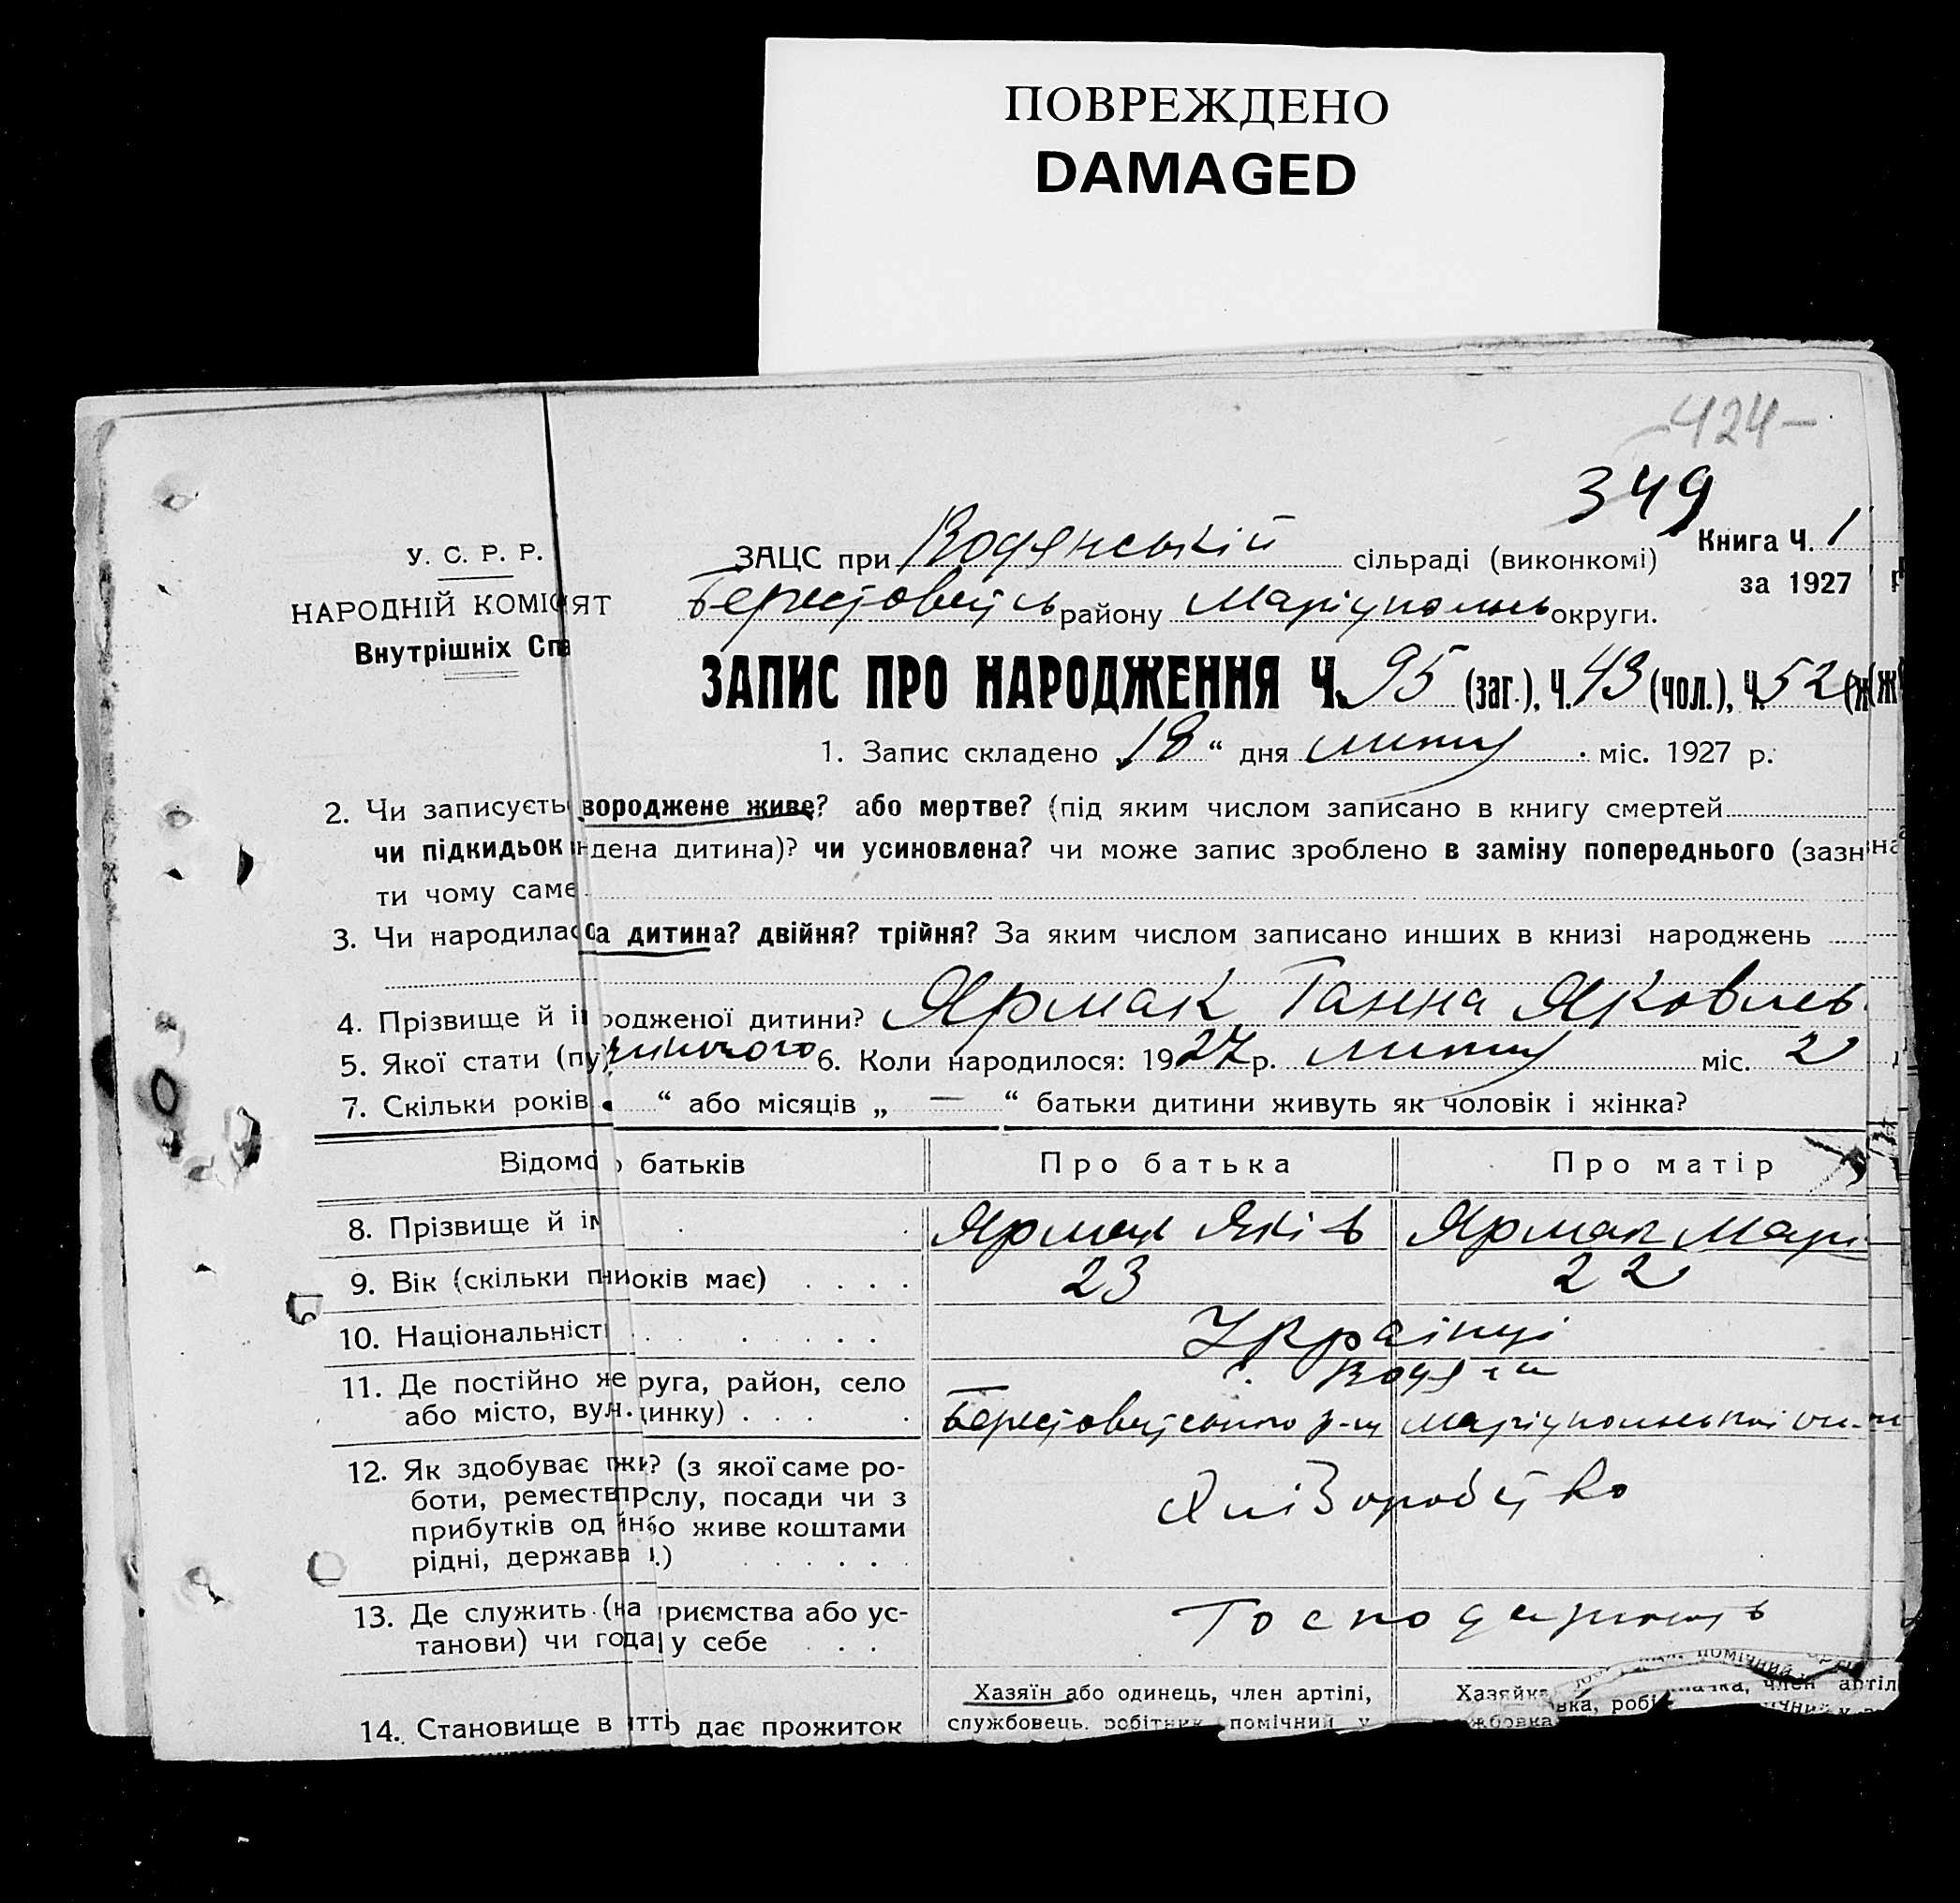 ПОВРЕЖДЕНО
DAMAGED
-424-
349
У. С. Р. Р.
ЗАЦС при Водянській сільраді (виконкомі)
Книга Ч. 1
за 1927
НАРОДНІЙ КОМІС ЯТ
Берестовець району Маріупольсь округи.
Внутрішніх Спа
ЗАПИС ПРО НАРОДЖЕННЯ Ч. 95 (заг.), Ч. 43 (чол.), Ч. 52 (ж
1. Запис складено „18“ дня лютц міс. 1927 р.
2. Чи записуєть вороджене живе? або мертве? (під яким числом записано в книгу смертей
чи підкидьок дена дитина)? чи усиновлена? чи може запис зроблено в заміну попереднього (зазн
ти чому саме
3. Чи народилас а дитина? двійня? трійня? За яким числом записано инших в книзі народжень
4. Прізвище й і родженої дитини? Ярмак Ганна Яковлев
5. Якої стати (пу жиночого 6. Коли народилося: 1927 р. лютц міс. 2
7. Скільки років “ або місяців „ — “ батьки дитини живуть як чоловік і жінка?
Відомо батьків Про батька Про матір
8. Прізвище й ім Ярмак Яків Ярмак Марі
9. Вік (скільки п оків має) 23 22
10. Національніст Українці
11. Де постійно же руга, район, село
або місто, вул. инку) Берестовецького р-ц Маріупольської
12. Як здобуває п жи? (з якої саме ро-
боти, реместв слу, посади чи з
прибутків од о живе коштами
рідні, держава .)
Хліборобство
13. Де служить (на приємства або ус-
танови) чи года у себе
Господарють
Хазяїн або одинець, член артілі,
Хазяйка
службовець, робітник помічний у
14. Становище в ттю дає прожиток